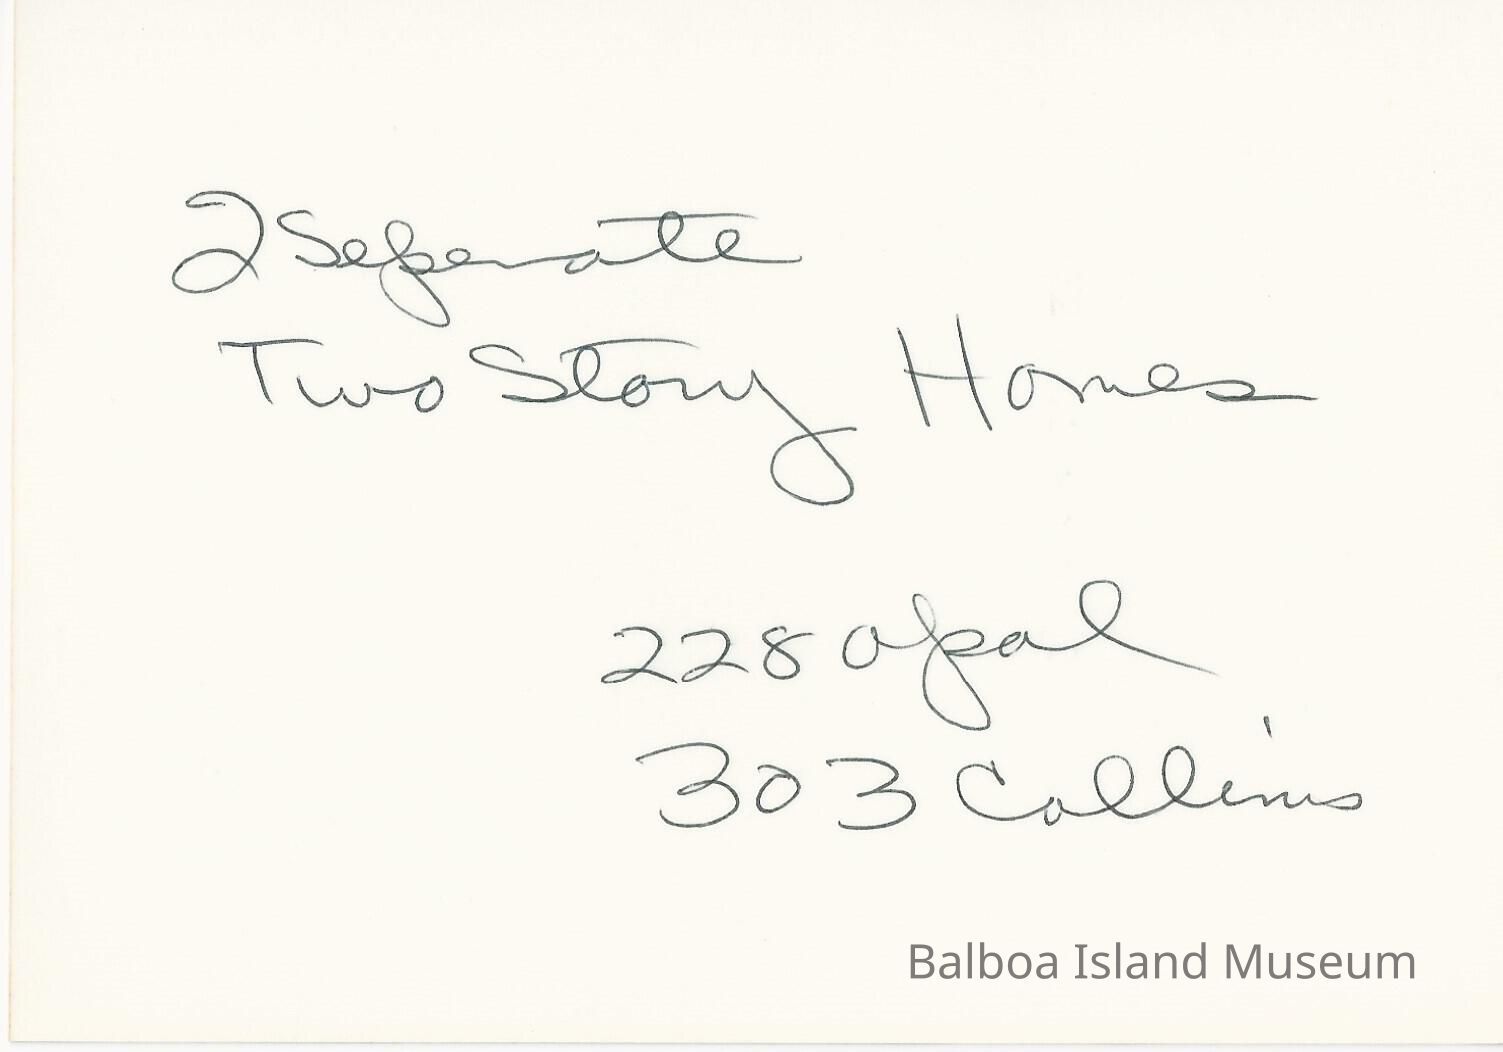 2 Seperate
Two Story Homes
228 Opal
303 Collins
Balboa Island Museum